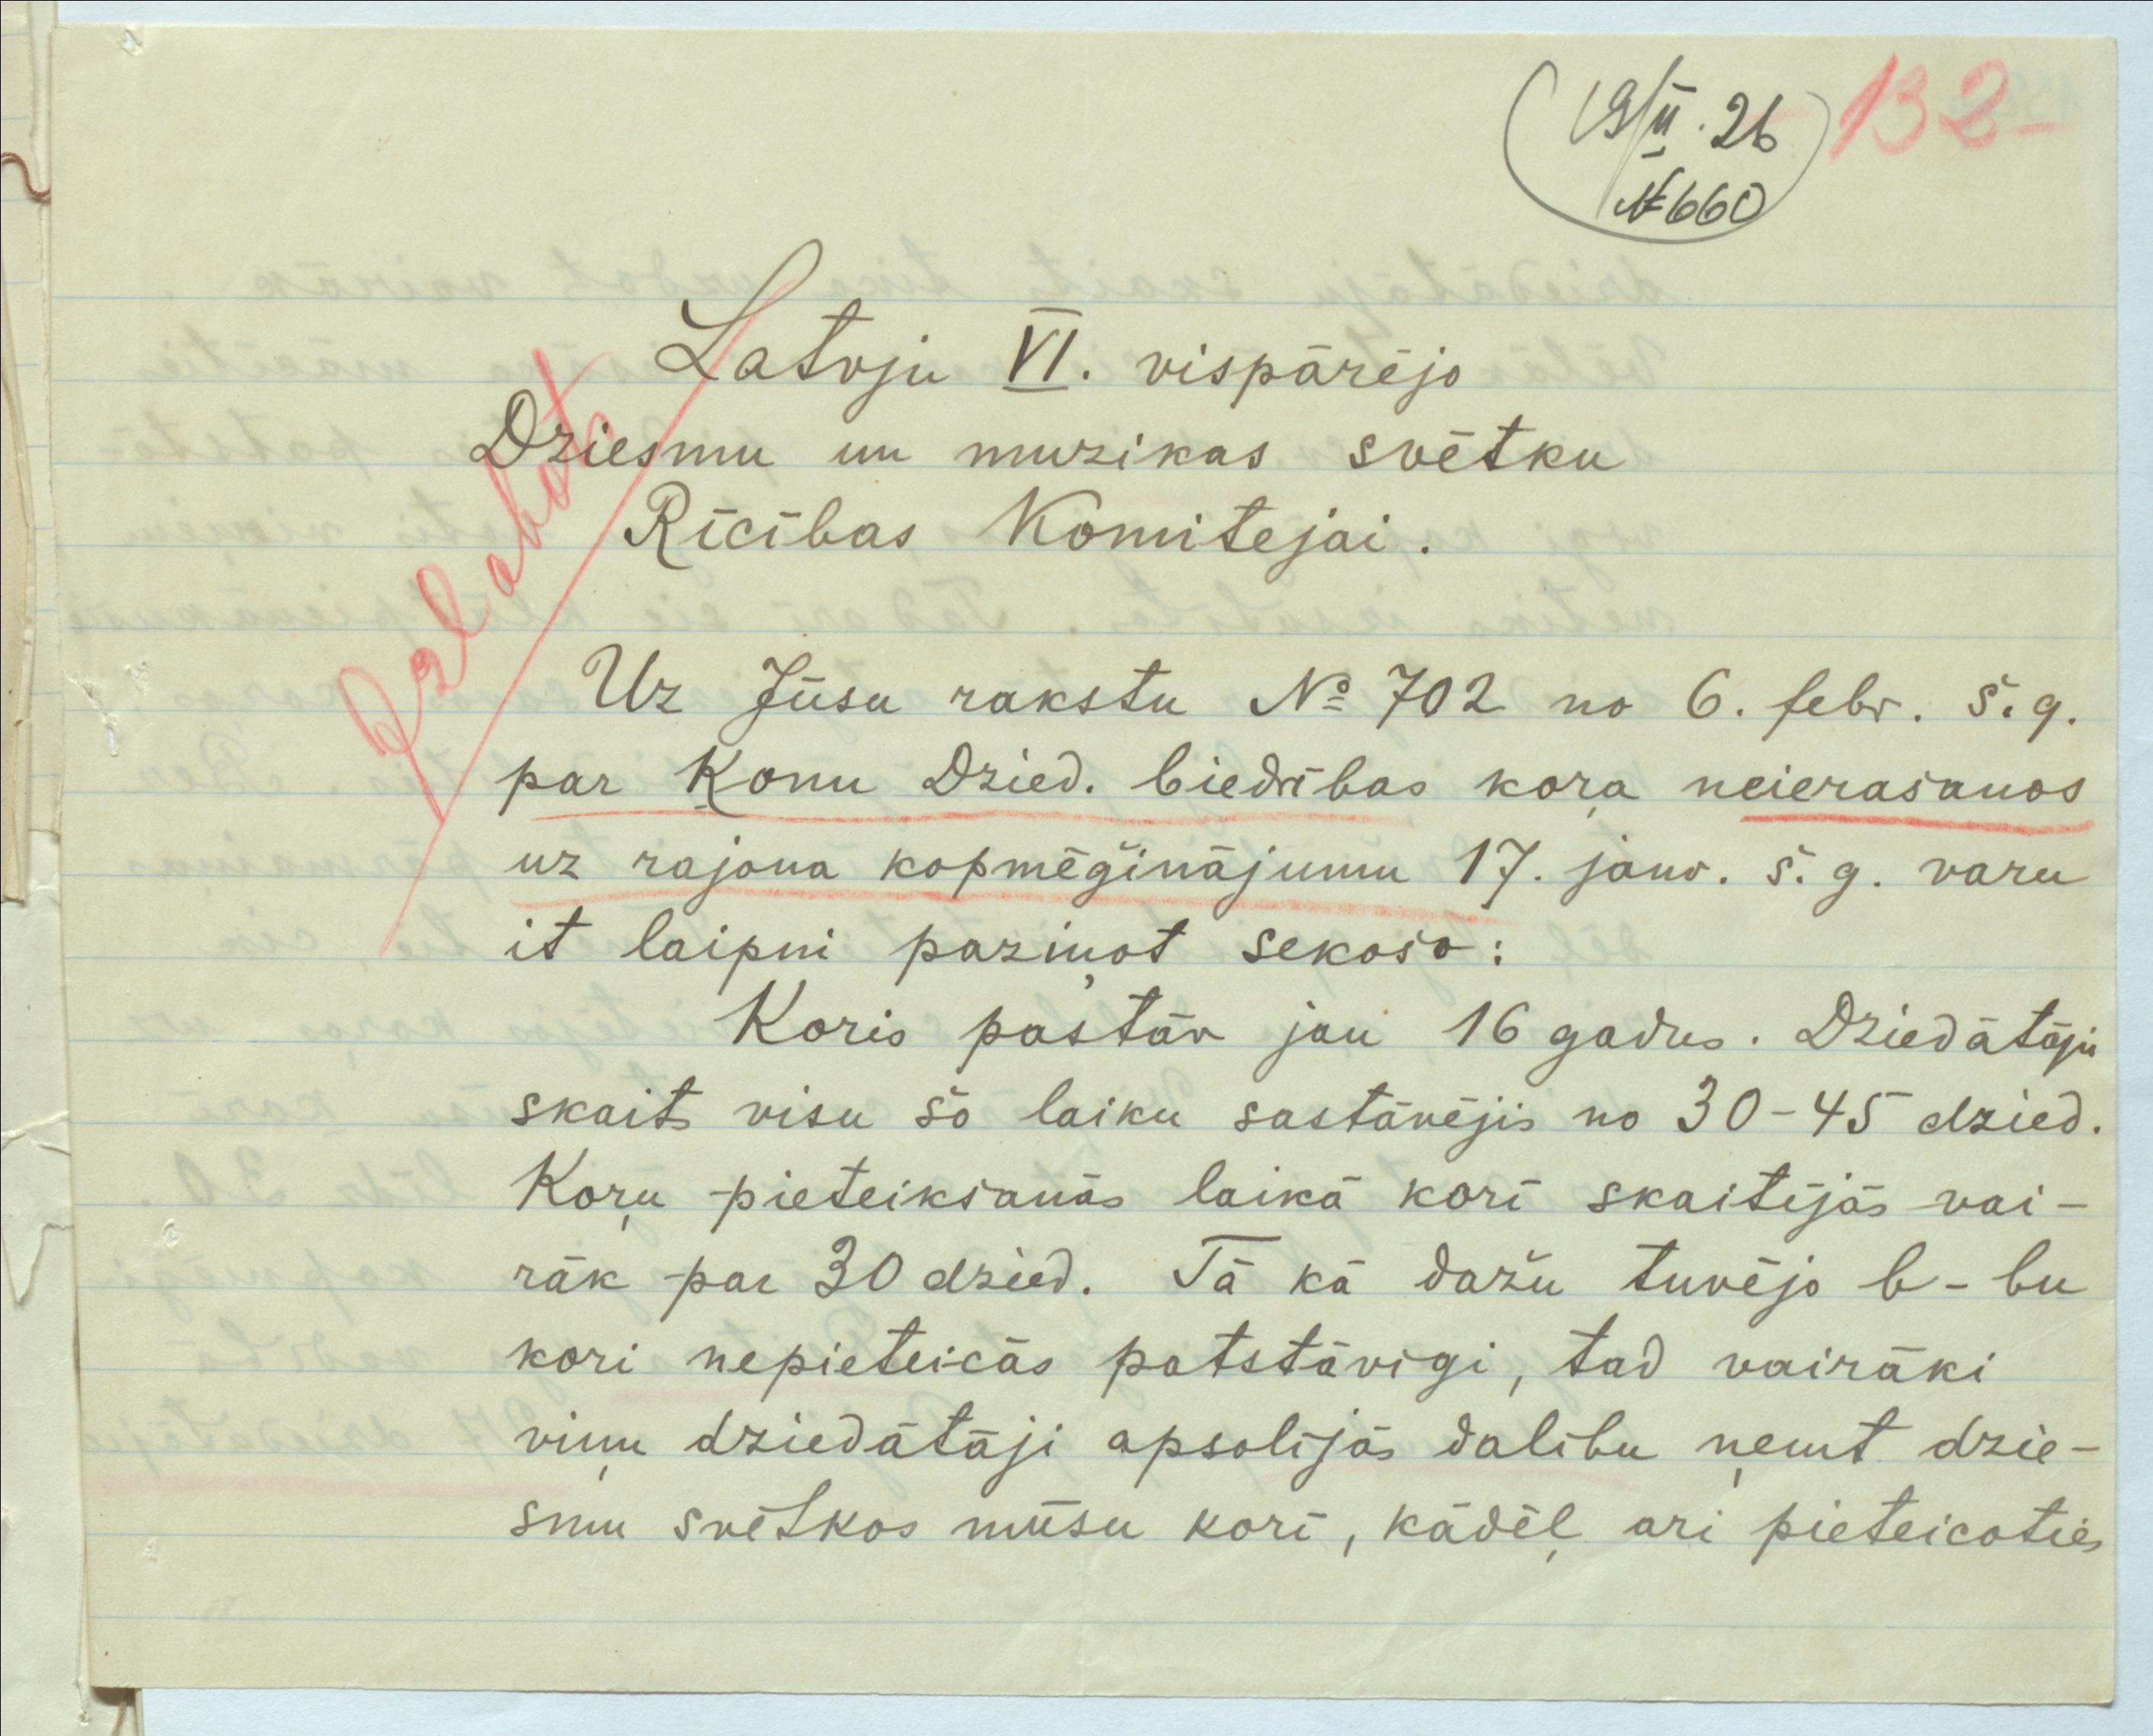 19/II. 26
№ 660
132
Latvju VI. vispārējo
Dziesmu un muzikas svētku
Rīcības Komitejai.
Uz Jūsu rakstu № 702 no 6. febr. š.g.
par Konu Dzied. biedrības koŗa neierašanos
uz rajona kopmēģinājumu 17. janv. š.g. varu
it laipni paziņot sekošo:
Koris pastāv jau 16 gadus. Dziedātāju
skaits visu šo laiku sastāvējis no 30-45 dzied.
Koŗu pieteikšanās laikā korī skaitījās vai-
rāk par 30 dzied. Tā kā dažu tuvējo b-bu
kori nepieteicās patstāvīgi, tad vairāki
viņu dziedātāji apsolījās dalību ņemt dzie-
smu svētkos mūsu korī, kādēļ ari pieteicoties